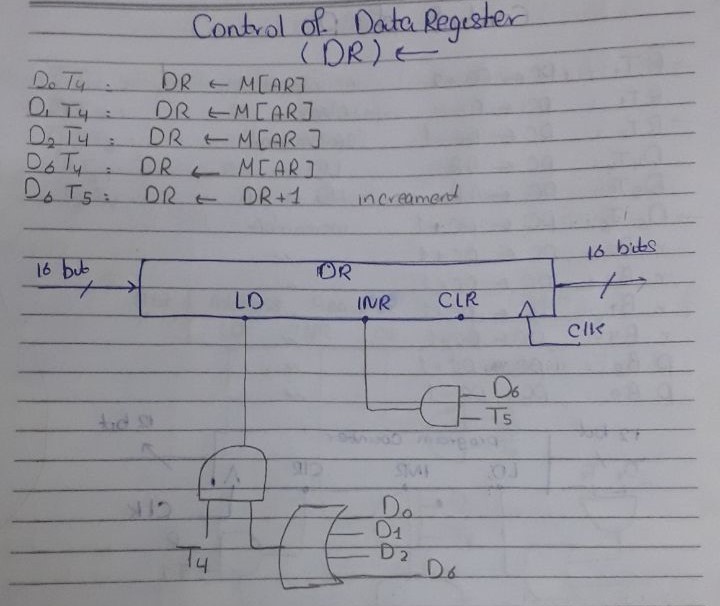 Control of Data Register
(DR) ←
D₀ T₄ : DR ← M[AR]
D₁ T₄ : DR ← M[AR]
D₂ T₄ : DR ← M[AR]
D₆ T₄ : DR ← M[AR]
D₆ T₅ : DR ← DR+1 increament
16 bit
16 bits
DR
LD INR CLR
Clk
D₆
T₅
D₀
D₁
D₂
D₆
T₄